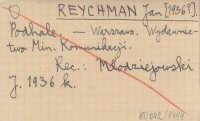 REYCHMAN Jan [1936?]
Podhale. — Warszawa. Wydawnic-
twa Min. Komunikacji.
Rec.: Młodziejowski
J. 1936 k.